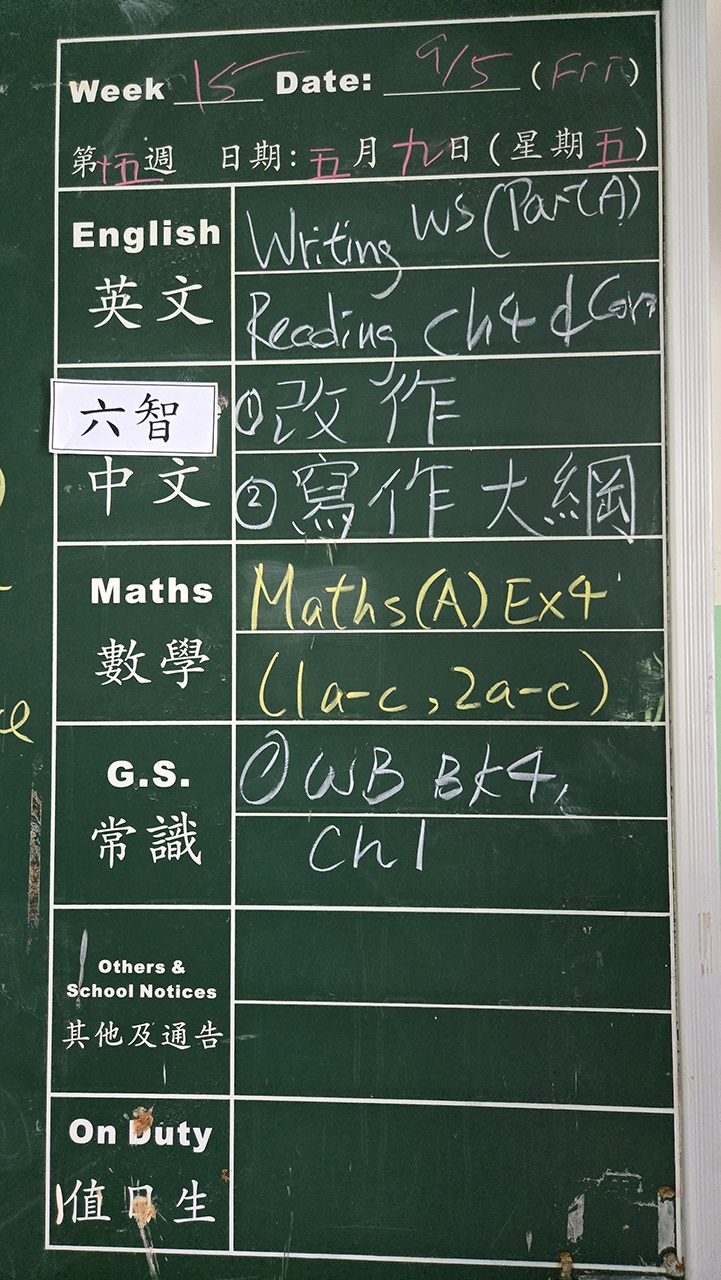 Week 15 Date: 9/5 (Fri)
第十五週 日期: 五月九日 (星期五)
English
英文
Writing WS (Part A)
Reading Ch4 & Corr
六智
中文
①改作
②寫作大綱
Maths
數學
Maths(A) Ex4
(1a-c, 2a-c)
G.S.
常識
① WB Bk4,
Ch 1
Others &
School Notices
其他及通告
On Duty
值日生